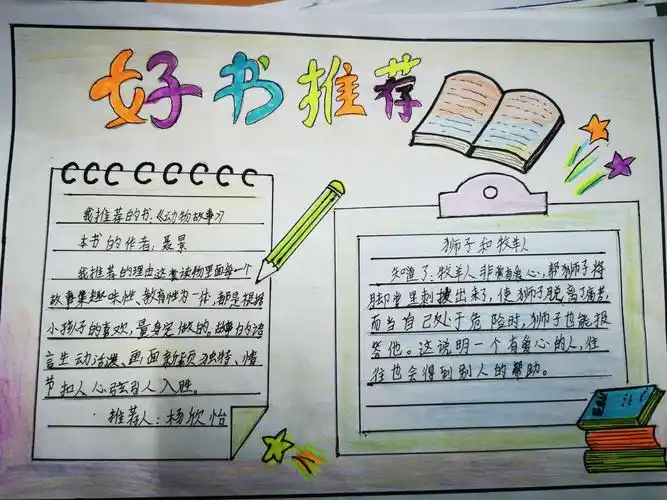 好书推荐
我推荐的书:《动物故事》
本书的作者:聂景
我推荐的理由这套读物里面每一个
故事集趣味性、教育性为一体,都是根据
小孩子的喜欢,量身定做的。故事的语
言生动活泼、画面新颖独特、情
节扣人心弦引人入胜。
推荐人:杨欣怡
狮子和牧羊人
知道了:牧羊人非常有爱心,帮狮子将
脚掌里刺拔出来了,使狮子脱离了痛苦,
而当自己处于危险时,狮子也能报
答他。这说明一个有爱心的人,往
往也会得到别人的帮助。